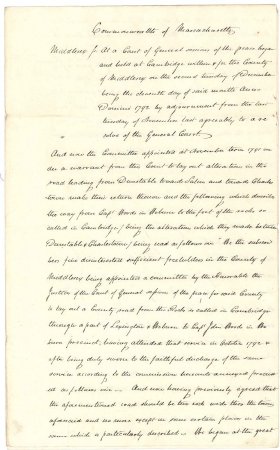 Commonwealth of Massachusetts
Middlesex ss. At a Court of General sessions of the peace begun
and held at Cambridge within & for the County
of Middlesex on the second tuesday of December
being the eleventh day of said month Anno
Domini 1792 by adjournment from the last
tuesday of November last agreeably to a re
solve of the General Court
And now the Committee appointed at November term 1791 un
der a warrant from this Court to lay out alteration in the
road leading from Dunstable toward Salem and toward Charles
town make their return thereon and the following which describes
the way from Capt Woods in Woburn to the foot of the rocks so
called in Cambridge / being the alteration which they made between
Dunstable & Charlestown / being read as follows viz We the subscri
bers five disinterested sufficient freeholders in the County of
Middlesex being appointed a committee by the Honorable the
Justices of the Court of General sessions of the peace for said County
to lay out a County road from the Rocks so called in Cambridge
through a part of Lexington & Woburn to Capt John Woods in Wo
burn precinct, having attended that service in October 1792 &
after being duly sworn to the faithful discharge of the same
service according to the commission hereunto annexed proceed
ed as follows viz And now having previously agreed that
the aforementioned road should be four rods wide thro the town
aforesaid and no more except in some certain places in the
same which is particularly described We began at the great